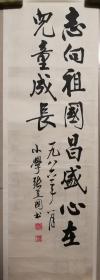 志向祖國昌盛心在
兒童成長
一九八六年月
小學張書